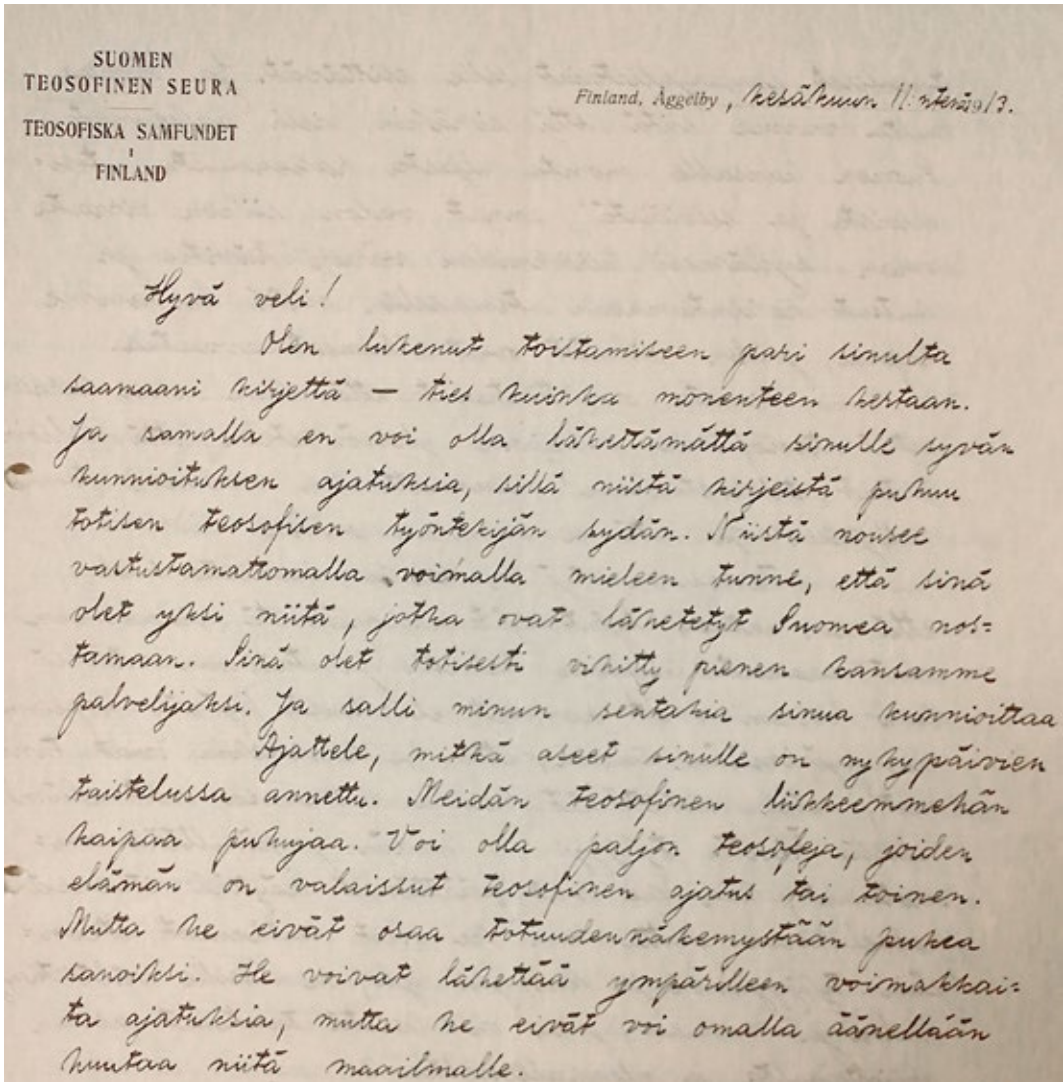 SUOMEN
TEOSOFINEN SEURA
TEOSOFISKA SAMFUNDET
I
FINLAND
Finland, Åggelby, kesäkuun 11. ntenä 1913.
Hyvä veli!
Olen lukenut toistamiseen pari sinulta
saamaani kirjettä — ties kuinka monenteen kertaan.
Ja samalla en voi olla lähettämättä sinulle syvän
kunnioituksen ajatuksia, sillä niistä kirjeistä puhuu
totisen teosofisen työntekijän sydän. Niistä nousee
vastustamattomalla voimalla mieleen tunne, että sinä
olet yksi niitä, jotka ovat lähetetyt Suomea nos=
tamaan. Sinä olet totisesti vihitty pienen kansamme
palvelijaksi. Ja salli minun sentakia sinua kunnioittaa
Ajattele, mitkä aseet sinulle on nykypäivien
taistelussa annettu. Meidän teosofinen liikkeemmehän
kaipaa puhujaa. Voi olla paljon teosofeja, joiden
elämän on valaissut teosofinen ajatus tai toinen.
Mutta he eivät osaa totuudennäkemystään pukea
sanoiksi. He voivat lähettää ympärilleen voimakkai=
ta ajatuksia, mutta he eivät voi omalla äänellään
huutaa niitä maailmalle.